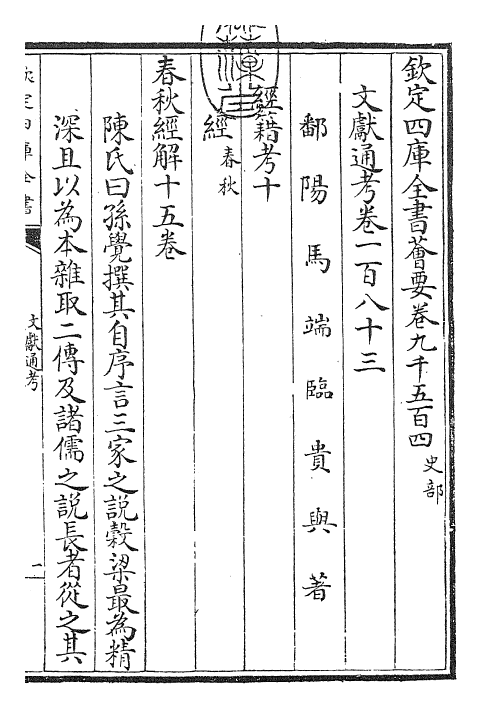 欽定四庫全書薈要卷九千五百四 史部
文獻通考卷一百八十三
鄱陽馬端臨貴與著
經籍考十
經 春秋
春秋經解十五卷
陳氏曰孫覺撰其自序言三家之說穀梁最為精
深且以為本雜取二傳及諸儒之說長者從之其
欽定四庫全書
文獻通考
一